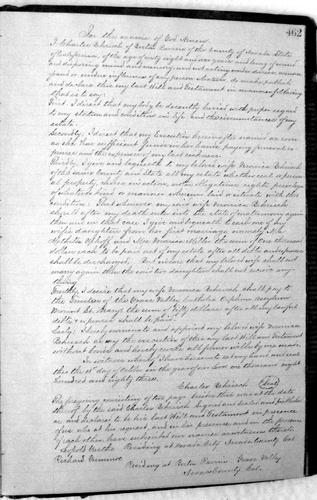 462
In the name of God Amen
I Charles Schirach of Boston Ravine of the County of Nevada State
of California, of the age of sixty eight and over years, and being of sound
and disposing mind and memory, and not acting under duress, menace,
fraud or undue influence of any person whatever, do make, publish
and declare this my last Will and Testament in manner following
that is to say
First. I direct that my body be decently buried with proper regard
to my station and condition in life and the circumstances of my
estate.
Secondly, I direct that my Executrix hereinafter named as soon
as she has sufficient funds in her hands, pay my funeral ex-
penses and the expenses of my last sickness.
Thirdly, I give and bequeath to my beloved wife Veronica Schirach
of the same County and State all my estate whether real or person-
al property
condition: That whenever my said wife Veronica Schirach
shall after my death enter into the state of matrimony again
then and in that case, I give and bequeath to each one of my
wife's daughters from her first marriage namely Mrs
Mathilda and Mrs the sum of five thousand
dollars each to be paid out of my estate after all debts and expenses
shall be discharged. But in case that my beloved wife shall not
marry again then the said two daughters shall not receive any
thing
Fourthly, I desire that my wife Veronica Schirach shall pay to
the Trustees of the Grass Valley Catholic Orphan Asylum
Mount St. Mary's the sum of Fifty dollars after all my lawful
debts & expenses shall be paid.
Lastly: I hereby nominate and appoint my beloved wife Veronica
Schirach as the executrix of this my last Will and Testament
without bonds and hereby revoke all former wills by me made.
In witness whereof I have hereunto set my hand and seal
this the 11th day of October in the year of our Lord one thousand eight
hundred and eighty three.
Charles Schirach (Seal)
The foregoing consisting of two pages besides this was at the date
thereof by the said Charles Schirach signed and sealed and published
as and declared to be his last Will and Testament in presence
of us who at his request, and in his presence and in the presence
of each other, have subscribed our names as witnesses thereto.
Residing at Nevada City Nevada County Cal.
Richard
Residing at Boston Ravine Grass Valley
Nevada County Cal.